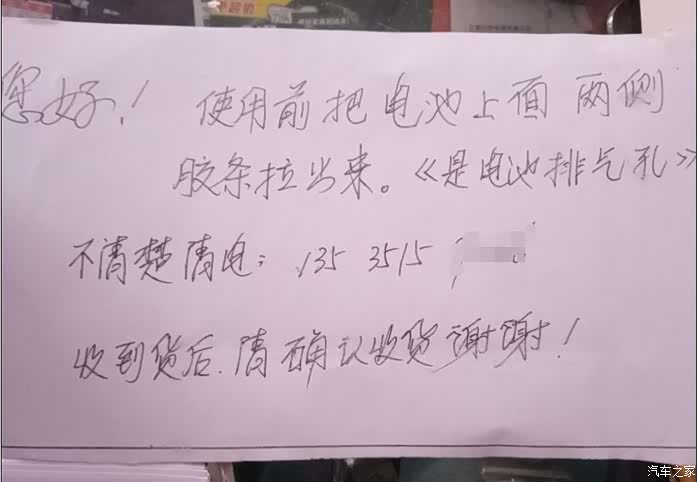 您好! 使用前把电池上面两侧
胶条拉出来。《是电池排气孔》
不清楚请电: 135 3515
收到货后.请确认收货谢谢!
汽车之家